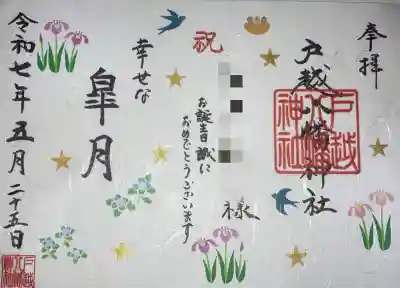 奉拝
戸越八幡神社
戸越八幡神社
様
祝
お誕生日誠に
おめでとうございます
幸せな
皐月
令和七年五月二十五日
戸越八幡神社